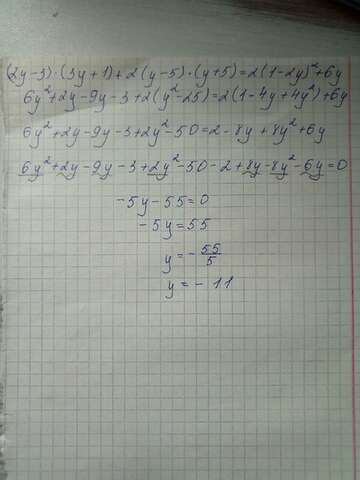 (2y-3)·(3y+1)+2(y-5)·(y+5)=2(1-2y)²+6y
6y²+2y-9y-3+2(y²-25)=2(1-4y+4y²)+6y
6y²+2y-9y-3+2y²-50=2-8y+8y²+6y
6y²+2y-9y-3+2y²-50-2+8y-8y²-6y=0
-5y-55=0
-5y=55
y=-55/5
y=-11